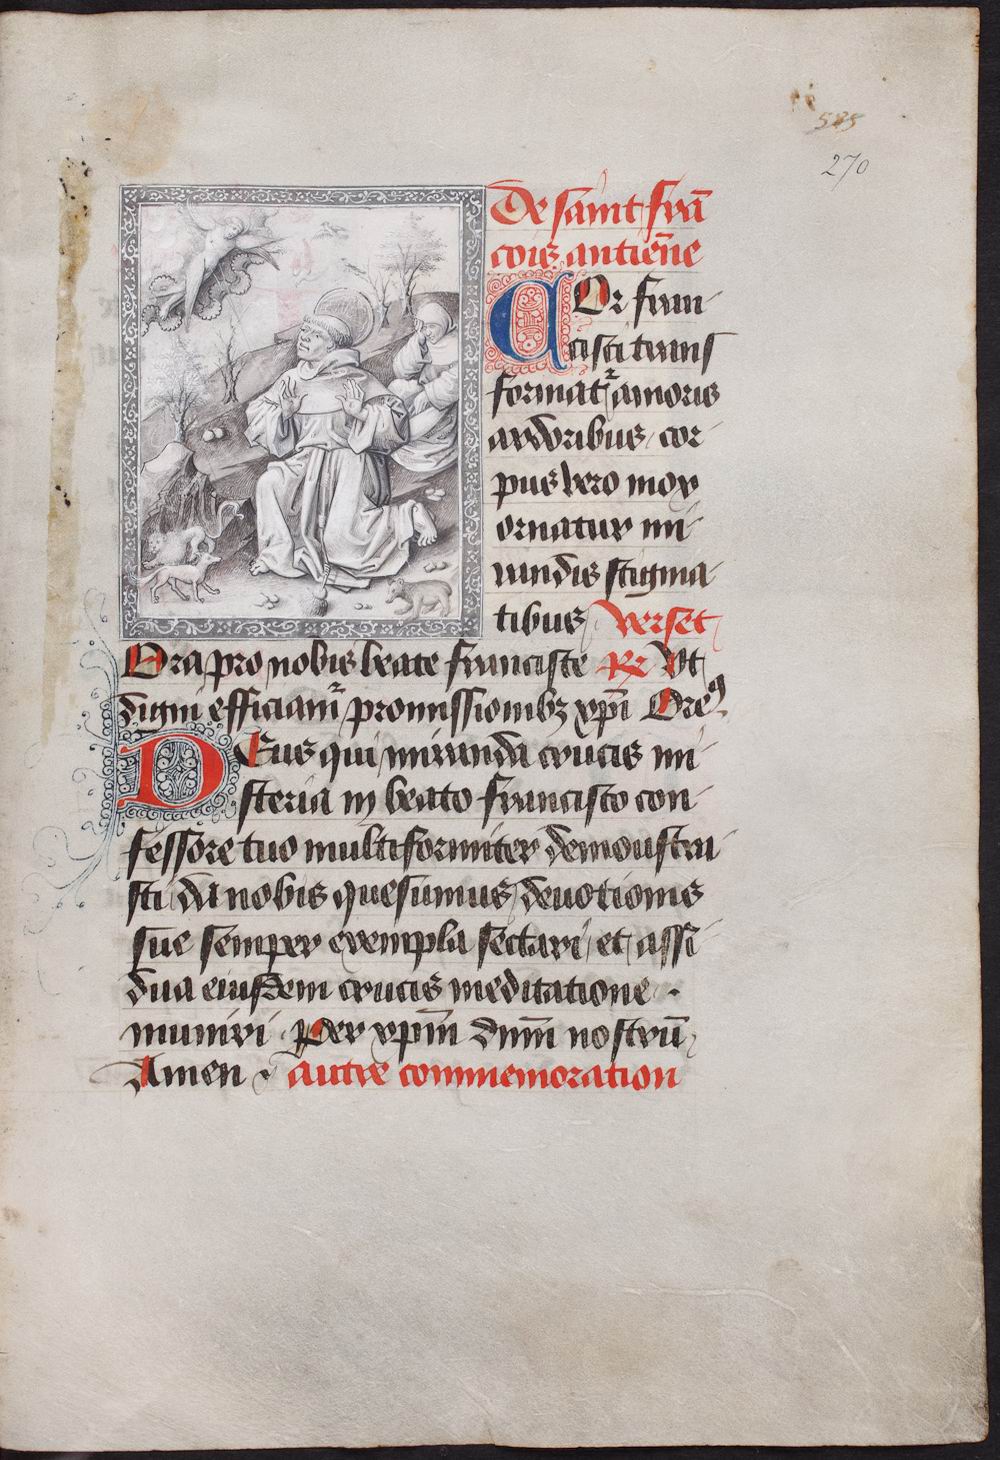 585
270
De saint frā
cois antiēne
COr fran
cisci trans
format᷑ amoris
ardoribus / cor
pus vero mox
ornatur mi
randis stigma
tibus / verset
Ora pro nobis beate franciste R̃ Vt
digni efficiam᷑ promissionibꝫ xp̄i Oreꝰ.
DEus qui / miranda crucis mi
steria in beato francisco con
fessore tuo multiformiter demonstra
sti / da nobis quesumus / deuotionis
sue semper exempla sectari / et assi
dua eiusdem crucis meditatione .
muniri . Per xpm̄ dnm̄ nostrū /
Amen . autre commemoration